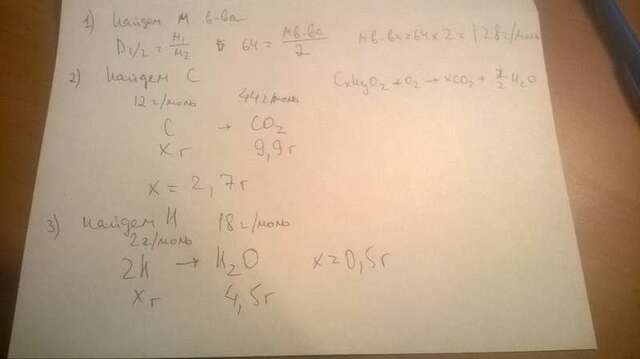 1) Найдем М в-ва
D1/2 = M1/M2 64 = Mв-ва/2 Mв-ва = 64 x 2 = 128 г/моль
2) Найдем С CxHyO2 + O2 → xCO2 + y/2 H2O
12 г/моль 44 г/моль
C → CO2
x г 9,9 г
x = 2,7 г
3) Найдем H 18 г/моль
2 г/моль
2H → H2O x = 0,5 г
x г 4,5 г